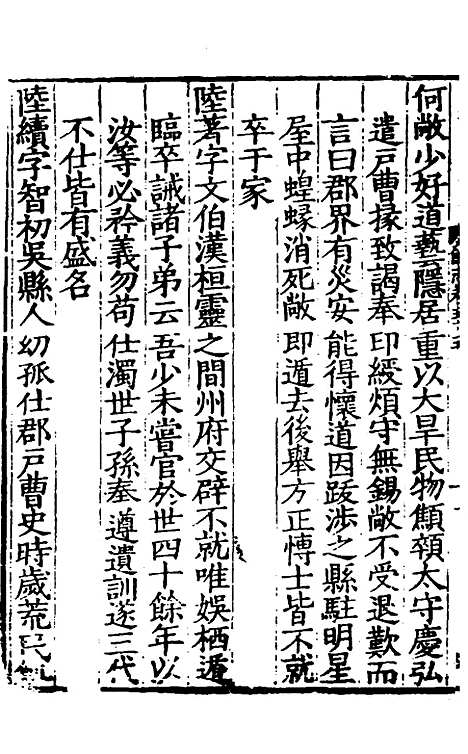 何敞少好道藝隱居重以大旱民物顦顇太守慶弘
遣戸曹掾致謁奉印綬煩守無錫敞不受退歎而
言曰郡界有災安能得懷道因跋涉之縣駐明星
屋中蝗蝝消死敞即遁去後舉方正博士皆不就
卒于家
陸著字文伯漢桓靈之間州府交辟不就唯娛栖遁
臨卒誡諸子弟云吾少未嘗官於世四十餘年以
汝等必矜義勿苟仕濁世子孫奉遵遺訓遂三代
不仕皆有盛名
陸續字智初吳縣人幼孤仕郡戸曹史時歲荒民